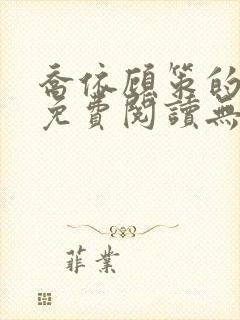 喬依顧策的
免費閱讀無
菲業